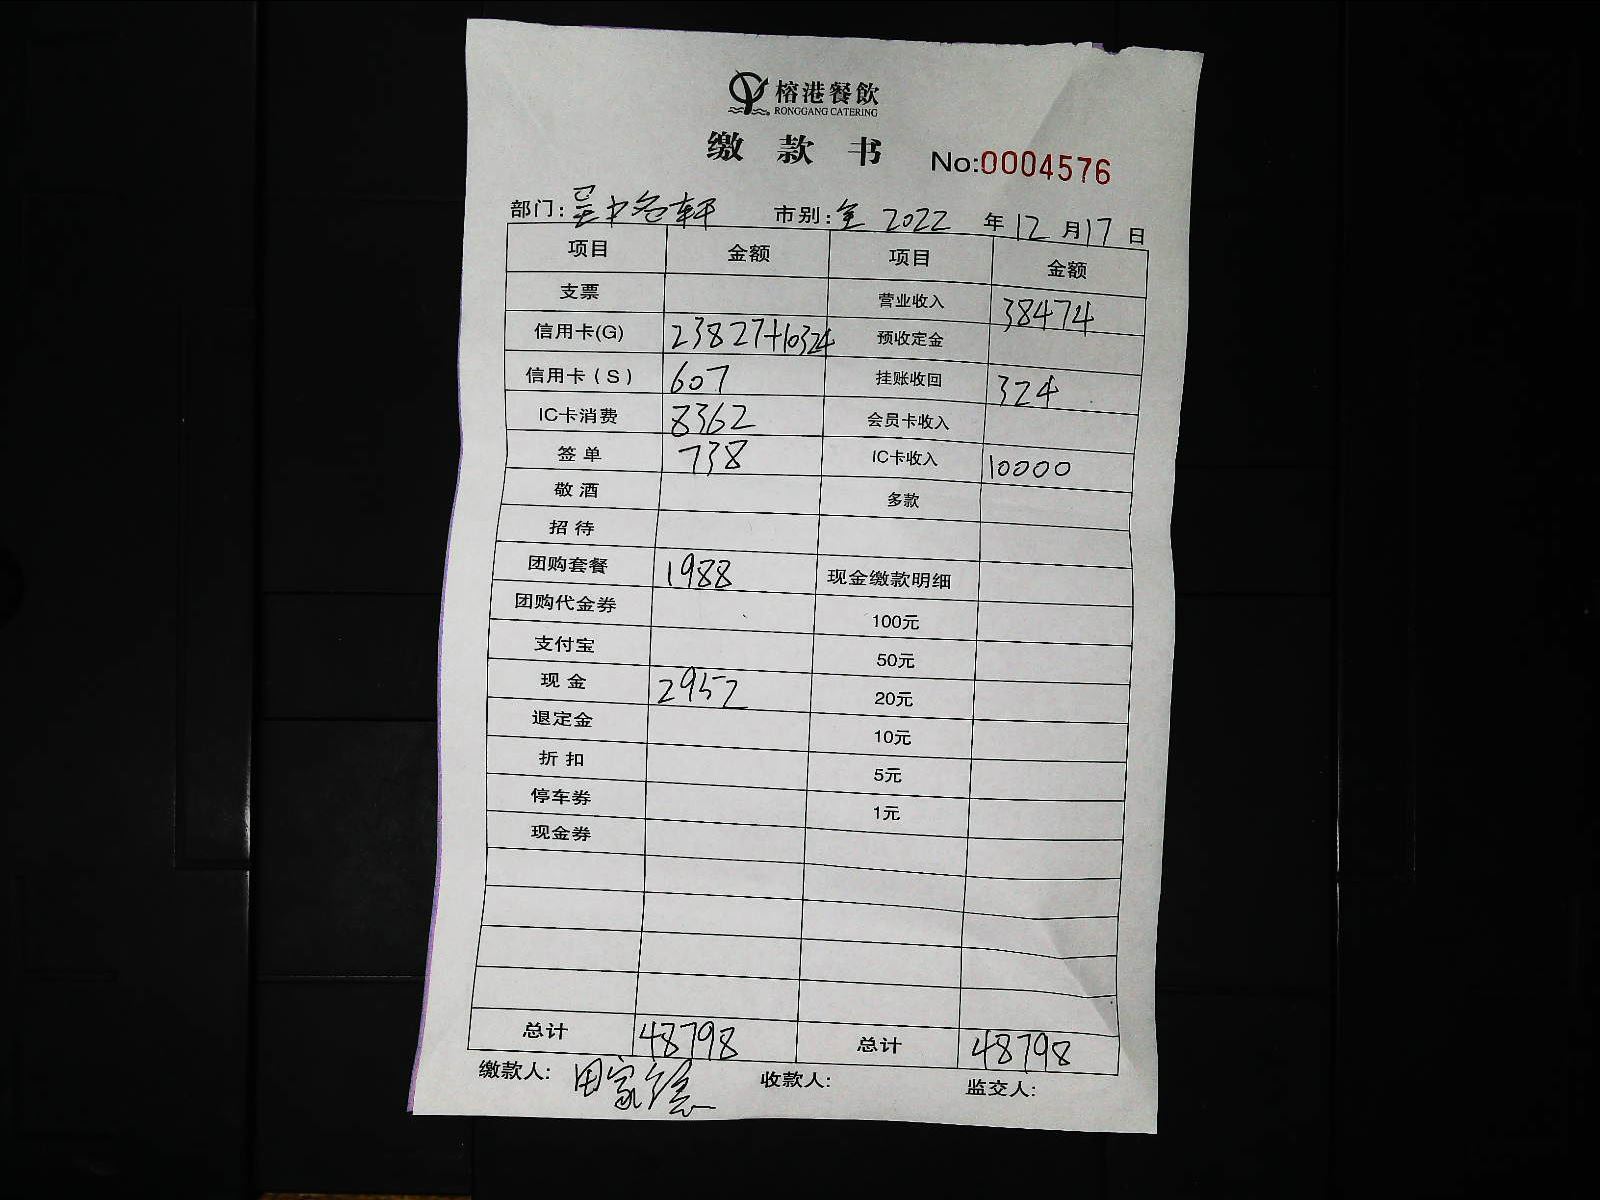 榕港餐飲
RONGGANG CATERING
缴款书 No:0004576
部门:吴中名轩 市别:全 2022 年 12 月 17 日
项目 金额 项目 金额
支票 营业收入 38474
信用卡(G) 23827+10324 预收定金
信用卡(S) 607 挂账收回 324
IC卡消费 8362 会员卡收入
签单 738 IC卡收入 10000
敬酒 多款
招待
团购套餐 1988 现金缴款明细
团购代金券 100元
支付宝 50元
现金 2952 20元
退定金 10元
折扣 5元
停车券 1元
现金券
总计 48798 总计 48798
缴款人: 田家 收款人: 监交人: